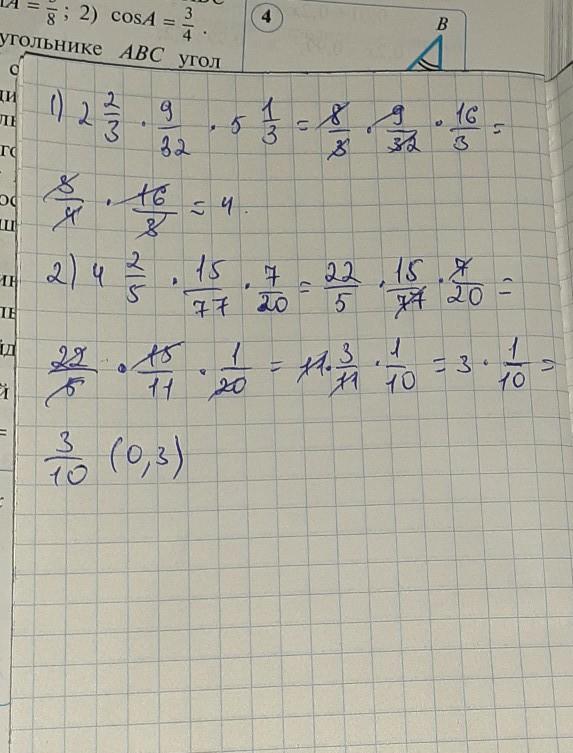 A = 5/8; 2) cosA = 3/4.
4
B
угольнике ABC угол
1) 2 2/3 · 9/32 · 5 1/3 = 8/3 · 9/32 · 16/3 =
3/4 · 16/3 = 4.
2) 4 2/5 · 15/77 · 7/20 = 22/5 · 15/77 · 7/20 =
22/5 · 15/11 · 1/20 = 11 · 3/11 · 1/10 = 3 · 1/10 =
3/10 (0,3)